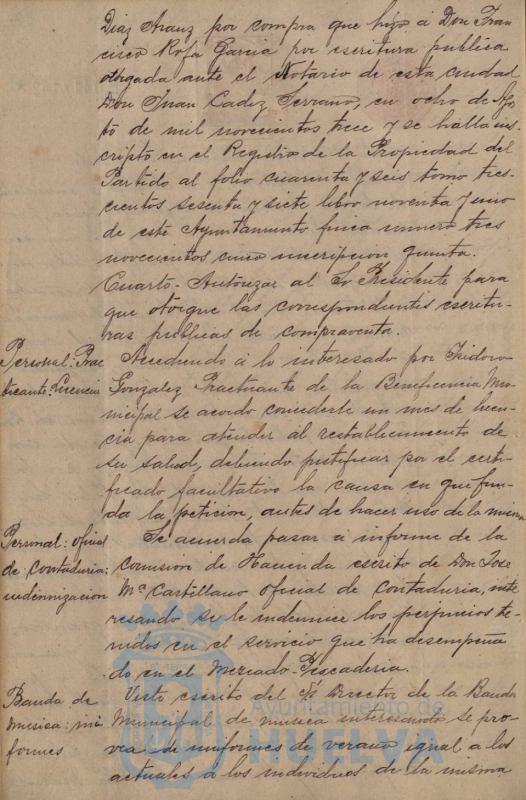 Diaz Aranz por compra que hizo á Don Fran
cisco Rofa Garcia por escritura publica
otorgada ante el Notario de esta ciudad
Don Juan Cadiz Serrano, en ocho de Agos
to de mil novecientos trece y se halla ins
cripto en el Registro de la Propiedad del
Partido al folio cuarenta y seis tomo tres-
cientos sesenta y siete libro noventa y uno
de este Ayuntamiento finca numero tres
novecientos cinco inscripcion quinta.
Cuarto- Autorizar al Sr Presidente para
que otorgue las correspondientes escritu-
ras publicas de compraventa.
Personal: Prac
ticante: Licencia
Accediendo á lo interesado por Isidoro
Gonzalez Practicante de la Beneficencia Mu-
nicipal se acordo concederle un mes de licen-
cia para atender al restablecimiento de
su salud, debiendo justificar por el certi-
ficado facultativo la causa en que fun-
da la peticion, antes de hacer uso de la misma
Personal: oficial
de Contaduria:
indemnizacion
Se acuerda pasar á informe de la
Comision de Hacienda escrito de Don Jose
Mª Castillano oficial de Contaduria, inte
resando se le indemnice los perjuicios te-
nidos en el servicio que ha desempeña
do en el Mercado Pescaderia.
Banda de
musica: uni
formes
Visto escrito del Sr Director de la Banda
Municipal de musica interesando se pro-
vea de uniformes de verano igual a los
actuales á los individuos de la misma
Ayuntamiento de
HUELVA